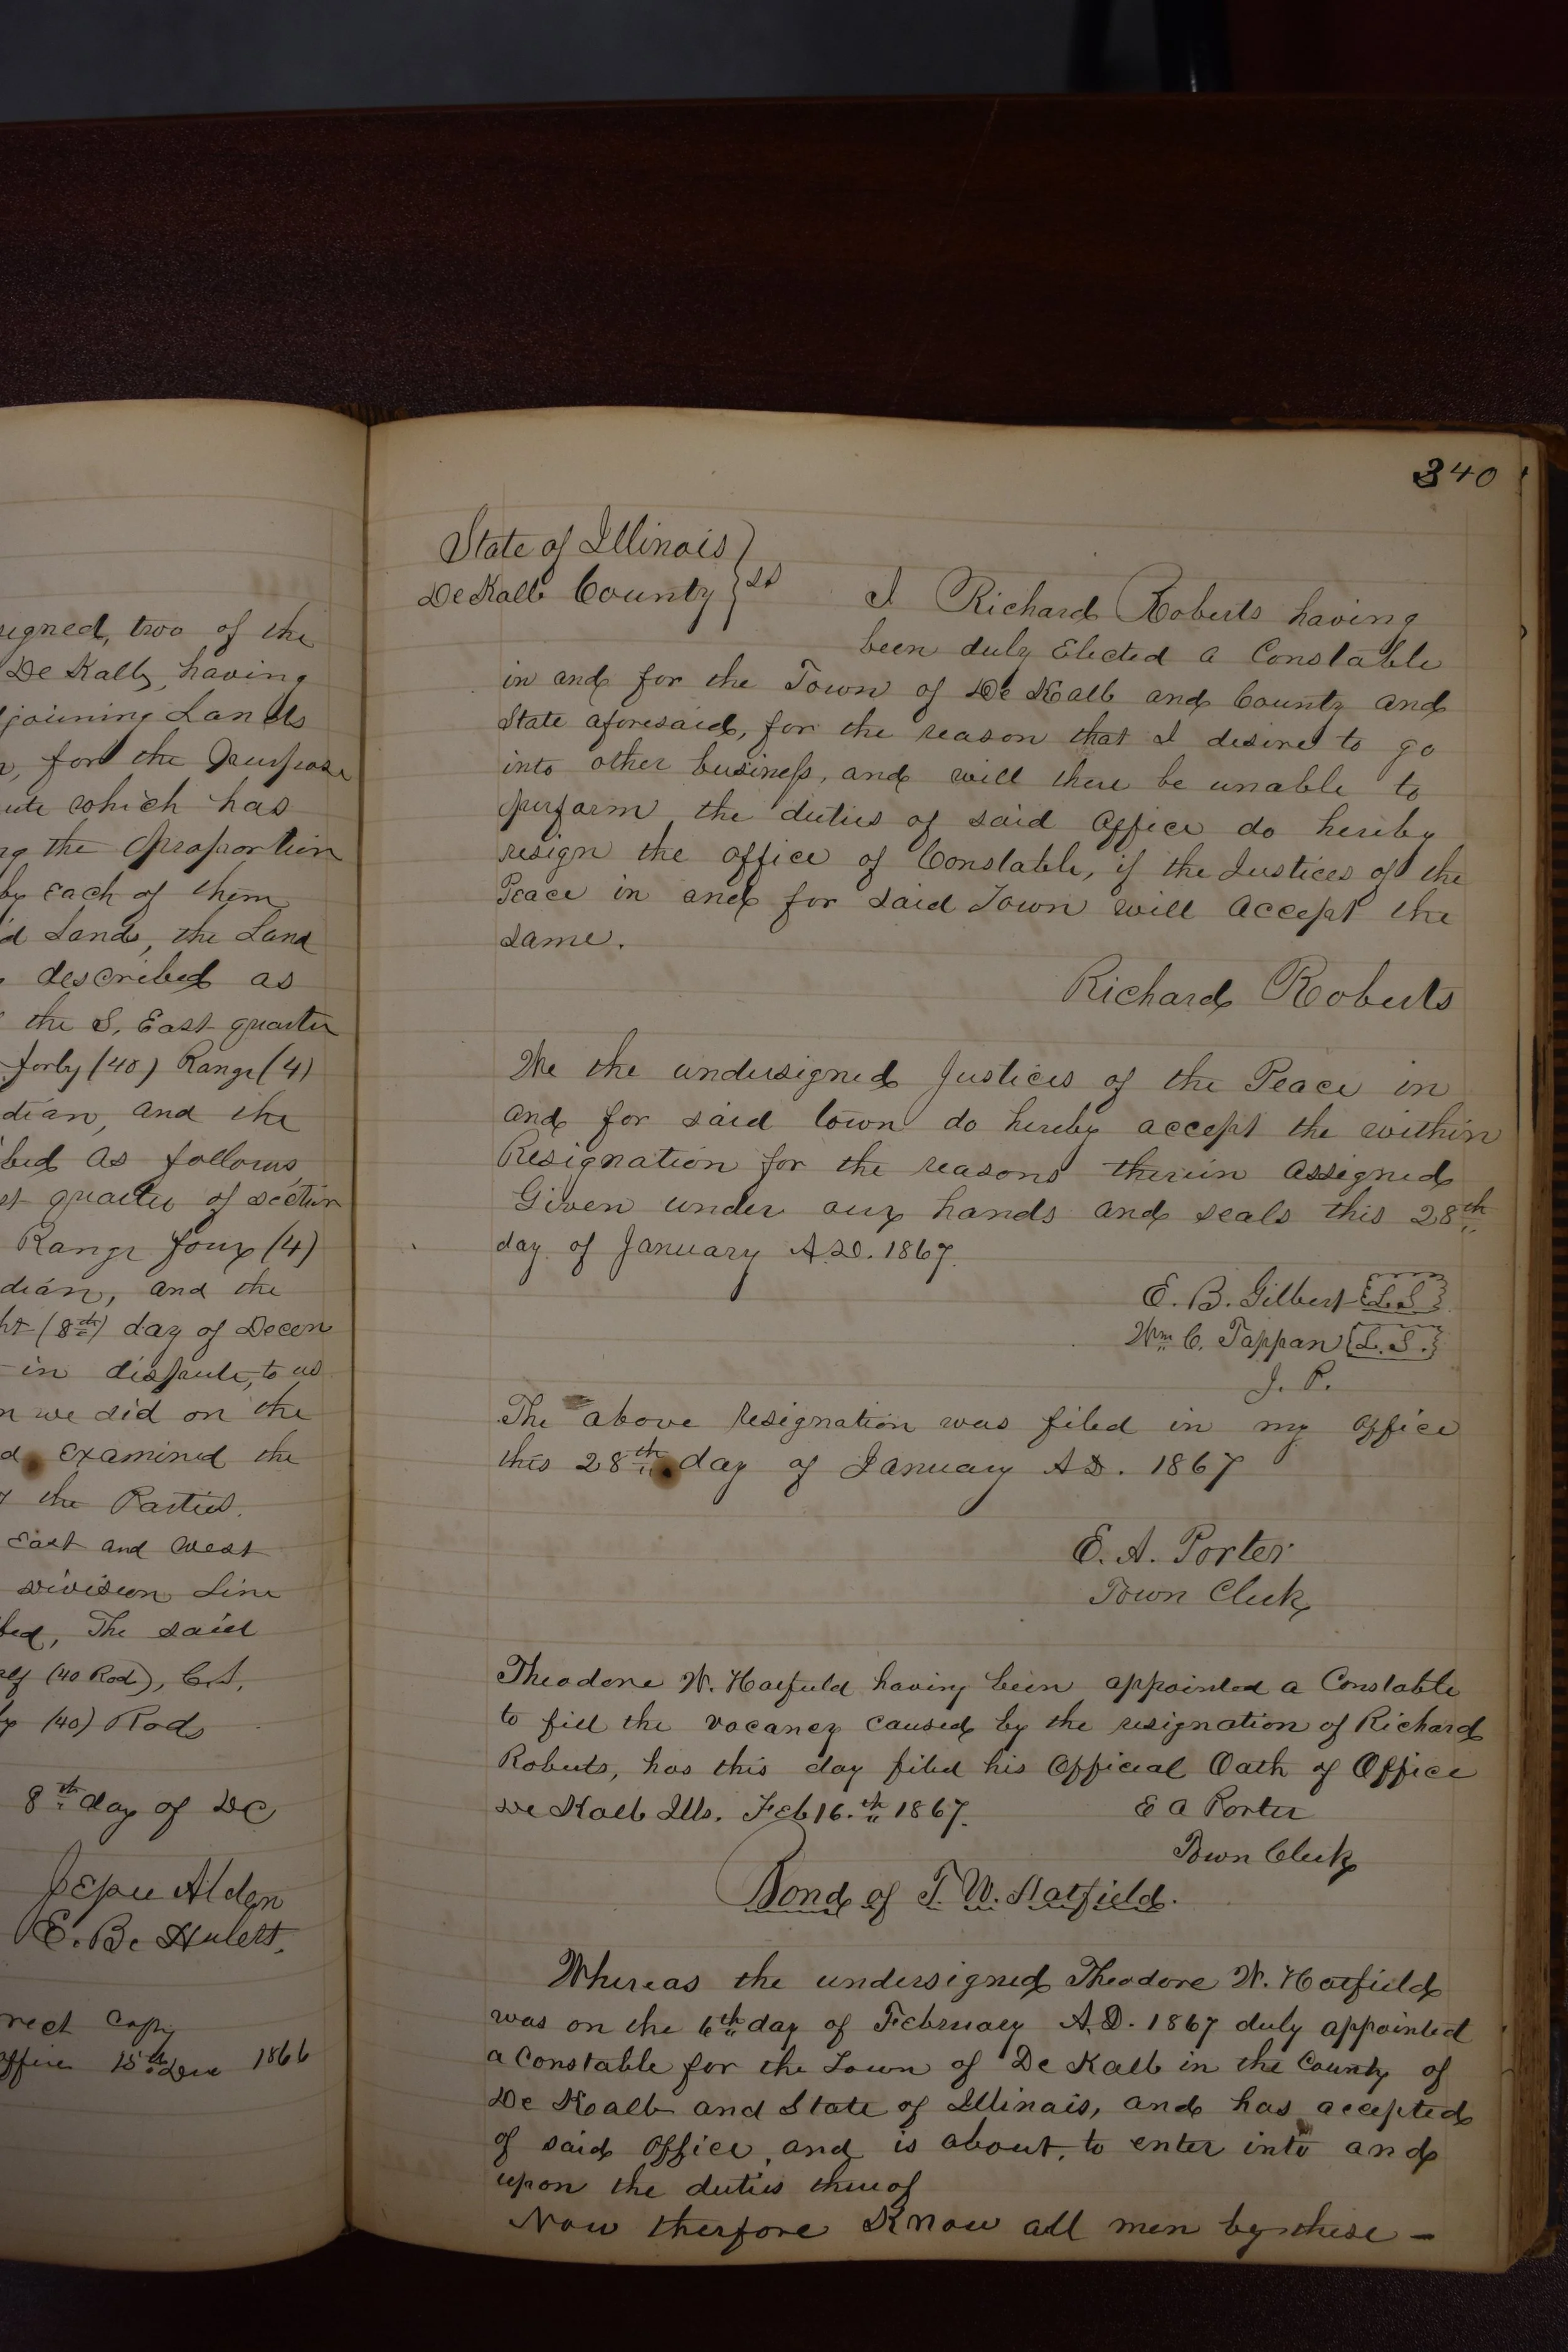 signed, two of the
De Kalb, having
joining Lands
for the Purpose
ute which has
ng the Proportion
by Each of them
d Land, the Land
described as
the S. East quarter
forty (40) Range (4)
dian, and the
bed as follows
st quarter of section
Range four (4)
dian, and the
ht (8th) day of Decem
in dispute, to us
n we did on the
d Examined the
the Parties.
East and West
Division Line
ted, The said
(40 Rod), C.S.
(40) Rods
8th day of DC
Jepee Alden
E. B. Hulett.
rrect Copy
office 15th Dec 1866
340
State of Illinois )
DeKalb County } SS I Richard Roberts having
been duly Elected a Constable
in and for the Town of De Kalb and County and
State aforesaid, for the reason that I desire to go
into other business, and will there be unable to
perform the duties of said office do hereby
resign the office of Constable, if the Justices of the
Peace in and for said Town will accept the
same.
Richard Roberts
We the undersigned Justices of the Peace in
and for said town do hereby accept the within
Resignation for the reasons therein assigned
Given under our hands and seals this 28th
day of January A.D. 1867.
E. B. Gilbert {L.S}
Wm C. Tappan {L.S.}
J. P.
The above resignation was filed in my office
this 28th day of January AD. 1867
E. A. Porter
Town Clerk
Theodore W. Hatfield having been appointed a Constable
to fill the vacancy caused by the resignation of Richard
Roberts, has this day filed his Official Oath of Office
De Kalb Ills. Feb 16.th 1867. E A Porter
Town Clerk
Bond of T. W. Hatfield.
Whereas the undersigned Theodore W. Hatfield
was on the 6th day of February A.D. 1867 duly appointed
a Constable for the Town of De Kalb in the County of
De Kalb and State of Illinois, and has accepted
of said office, and is about to enter into and
upon the duties thereof
Now therfore Know all men by these -